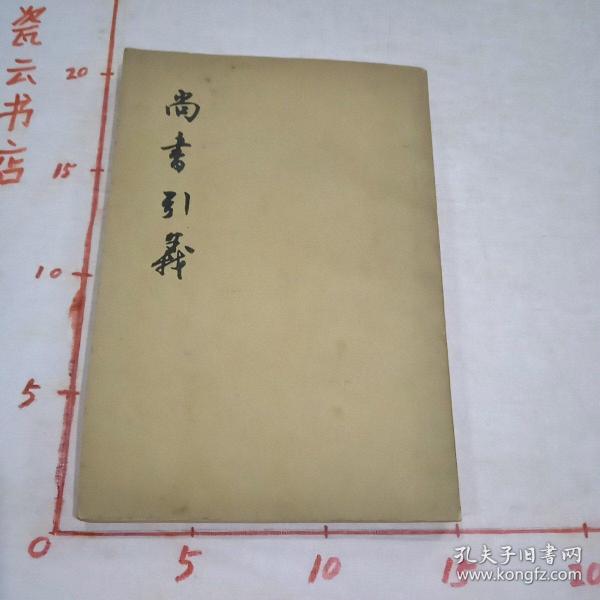 瓷云书店
尚書引義
20
15
10
5
0
5
10
15
20
孔夫子旧书网
www.kongfz.com